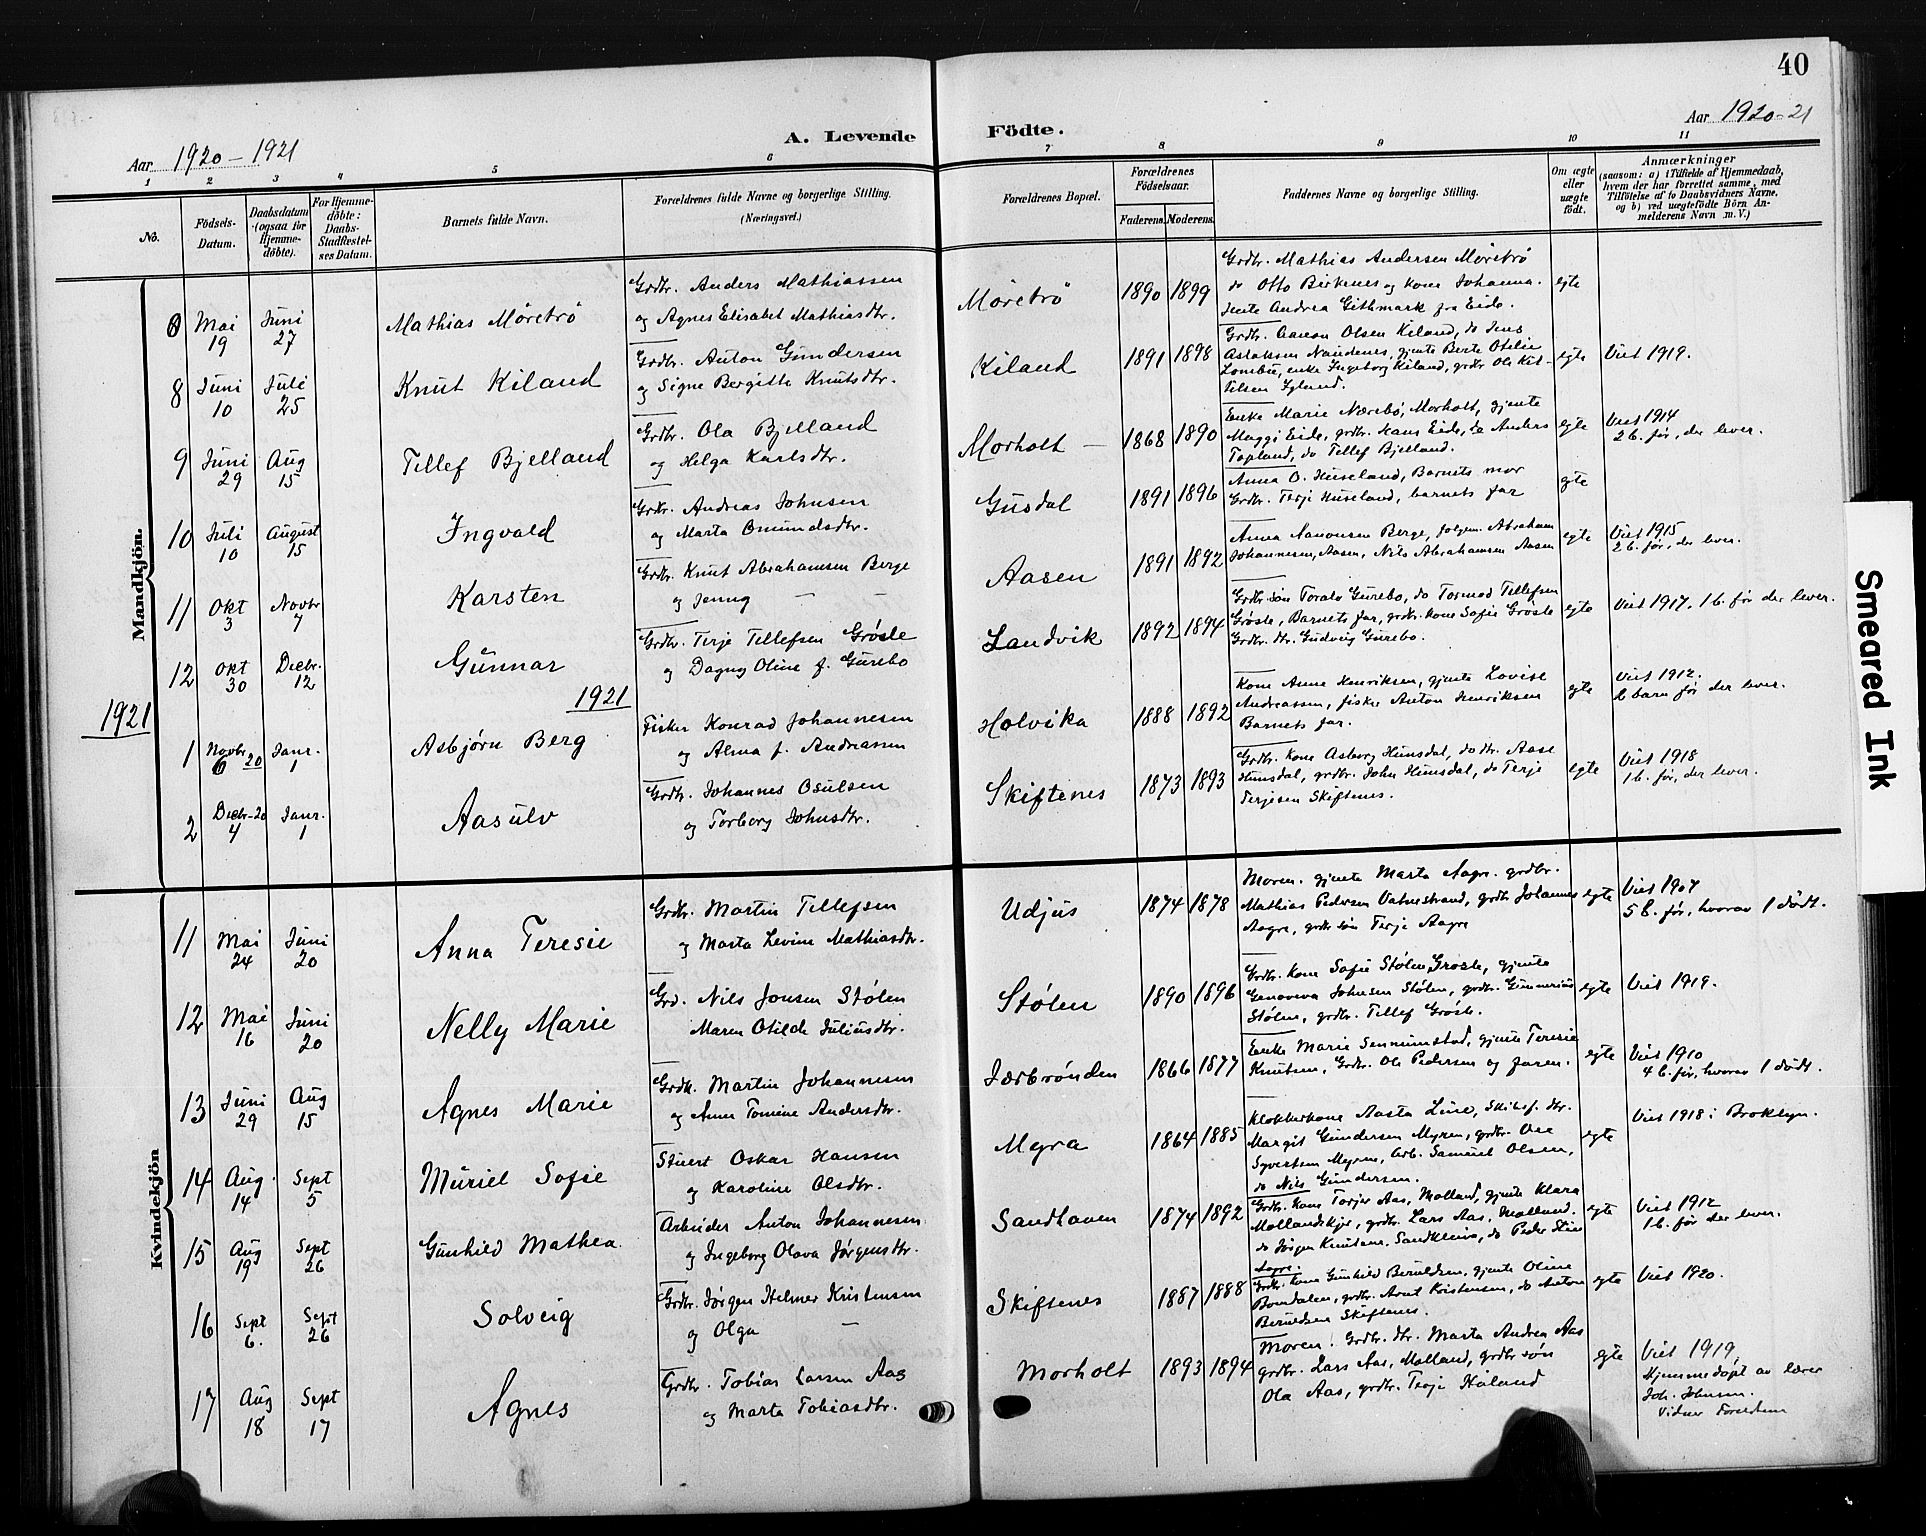 40
Aar 1920-1921
A. Levende Födte.
Aar 1920-21
1 2 3 4 5 6 7 8 9 10 11
No.
Födsels-Datum.
Daabsdatum (ogsaa for Hjemmedøbte).
For Hjemmedøbte: Daabs-Stadfestelses Datum.
Barnets fulde Navn.
Forældrenes fulde Navne og borgerlige Stilling. (Næringsvei.)
Forældrenes Bopæl.
Forældrenes Födselsaar.
Faderens. Moderens.
Faddernes Navne og borgerlige Stilling.
Om ægte eller uægte født.
Anmærkninger (saasom: a) i Tilfælde af Hjemmedaab, hvem der har forrettet samme, med Tilføielse af to Daabsvidners Navne, og b) ved uægtefødte Börn Anmelderens Navn m. V.)
Mandkjön.
Mai 19 Juni 27 Mathias Møretrø Grdbr. Anders Mathiassen og Agnes Elisabet Mathiasdtr. Møretrø 1890 1899 Grdbr. Mathias Andersen Møretrø do Otto Birkenes og kone Johanna. Jente Andrea Githmark fra Eide. egte
8 Juni 10 Juli 25 Knut Kiland Grdbr. Anton Gundersen og Signe Bergitte Knutsdtr. Kiland 1891 1898 Grdbr. Aanon Olsen Kiland, do Jens Aslaksen Naudenes, gjente Berte Otelie enke Ingeborg Kiland, grdbr Ole Ketilsen Igland. egte Viet 1919.
9 Juni 29 Aug 15 Tellef Bjelland Grdbr. Ola Bjelland og Helga Karlsdtr. Morholt 1868 1890 Enke Marie Nærebø, Morholt, gjente Maggi Eide, grdbr. Hans Eide, do Anders Topland, do Tellef Bjelland. egte Viet 1914 2 b. før, der lever.
10 Juli 10 August 15 Ingvald Grdbr. Andreas Johnsen og Marta Omundsdtr. Gusdal 1891 1896 Anna O. Huseland, Barnets mor Grdbr. Terje Huseland, barnets far egte
11 Okt 3 Novbr 7 Karsten Grdbr. Knut Abrahamsen Berge og Jenny Aasen 1891 1892 Anna Aanonsen Berge, Abraham Johannesen, Aasen, Nils Abrahamsen Aasen egte Viet 1915 2 b. før, der lever.
12 Okt 30 Decbr. 12 Gunnar Grdbr. Terje Tellefsen Grøsle og Dagny Oline f. Gurebo Landvik 1892 1894 Grdbr søn Toralv Gurebo, do Tormod Tellefsen Grøsle, Barnets far, grdbr. kone Sofie Grøsle Grdbr. dtr. Gudveig Gurebo. egte Viet 1917. 1 b. før der lever.
1921 1921
1 Novbr 6 20 Janr. 1 Asbjørn Berg Fisker Konrad Johannesen og Alma f. Andreassen Holvika 1888 1892 Kone Anne Henriksen, gjente Lovise Andreassen, fisker Anton Henriksen Barnets far. egte Viet 1912. 6 barn før der lever.
2 Decbr-20 4 Janr. 1 Aasulv Grdbr. Johannes Osulsen og Torborg Johnsdtr. Skiftenes 1873 1893 Grdbr. kone Asborg Hunsdal, do dtr. Aase Hunsdal, grdbr. John Hunsdal, do Terje Terjesen Skiftenes. egte Viet 1918 1 b. før, der lever.
Kvindekjön
11 Mai 24 Juni 20 Anna Teresie Grdbr. Martin Tellefsen og Marta Levine Mathiasdtr. Udjus 1874 1878 Moren. gjente Marta Aagre. grdbr. Mathias Pedersen Vatnestrand, grdbr Johannes Aagre, grdbr søn Terje Aagre egte Viet 1907 5 b. før, hvorav 1 dødt.
12 Mai 16 Juni 20 Nelly Marie Grd. Nils Jonsen Stølen Maren Otilde Juliusdtr. Stølen 1890 1896 Grdbr. kone Sofie Stølen, Grøsle, gjente Genoveva Johnsen Stølen, grdbr. Gunnerius Stølen, grdbr. Tellef Grøsle. egte Viet 1919.
13 Juni 29 Aug 15 Agnes Marie Grdbr. Martin Johannesen og Anne Tomine Andersdtr. Jærbrønden 1866 1877 Enke Marie Sennumstad, gjente Teresie Knutsen, Grdbr. Ole Pedersen og faren. egte Viet 1910 4 b. før, hvorav 1 dødt.
14 Aug. 14 Sept 5 Muriel Sofie Stuert Oskar Hansen og Karoline Olsdtr. Myra 1864 1885 Klokkerkone Aasta Line, Skibsf. dtr. Margit Gundersen Myren, grdbr. Ole Syvertsen Myrene, Arb. Samuel Olsen, do Nils Gundersen. egte Viet 1918 i Broklyn.
15 Aug 19 Sept 26 Gunhild Mathea Arbeider Anton Johannesen og Ingeborg Olava Jørgensdtr. Sandhaven 1874 1892 Grdbr. kone Torjer Aas, Molland, gjente Klara Mollandskjer, grdbr. Lars Aas, Molland. do Jørgen Knutsen, Sandkleiva, do Peder Aagre. egte Viet 1912 1 b. før der lever.
16 Sept 6. Sept 26 Solveig Grdbr. Jørgen Helmer Kristensen og Olga Skiftenes 1887 1888 Grdbr. kone Gunhild Beruldsen, gjente Oline Bomdalen, grdbr. Arnt Kristensen, do Anton Beruldsen Skiftenes. egte Viet 1920.
17 Aug 18 Sept 17 Agnes Grdbr. Tobias Larsen Aas og Marta Tobiasdtr. Morholt 1893 1894 Moren. Grdbr. dtr. Marta Andrea Aas grdbr. Lars Aas, Molland, grdbr søn Ola Aas, grdbr. Terje Håland egte Viet 1919. Hjemmedøpt av lærer Joh. Johnsen. Vidner Foreldrene
Smeared Ink